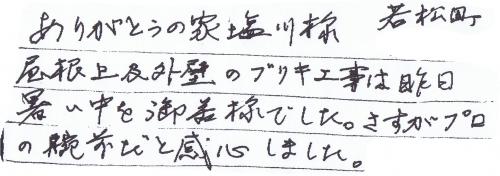 ありがとうの家塩川様 若松町
屋根上及外壁のブリキ工事は昨日
暑い中を御苦様でした。さすがプロ
の腕前だと感心しました。